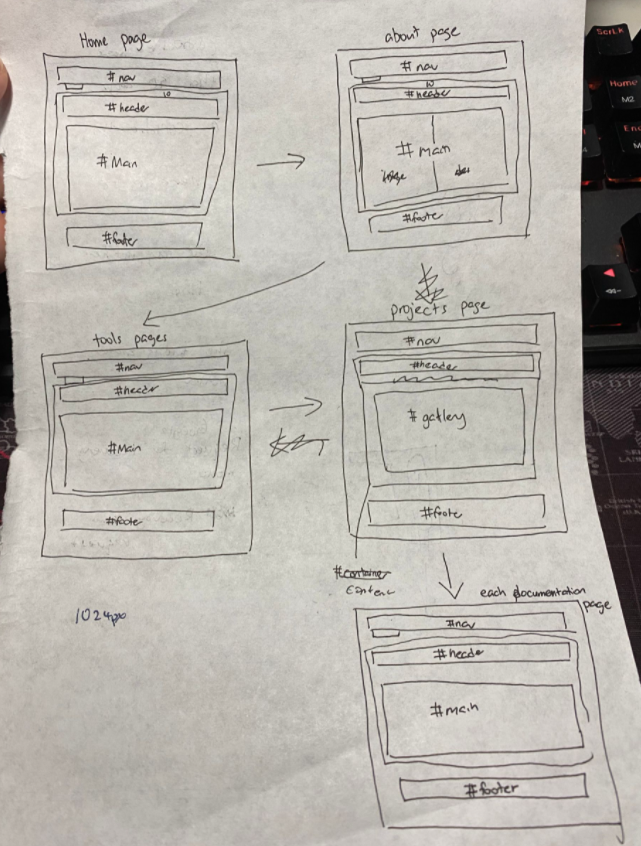 Home page
#nav
10
#header
#Main
#footer
about page
#nav
10
#header
#main
#footer
tools pages
#nav
#header
#Main
#footer
projects page
#nav
#header
#footer
#container
each documentation
page
#nav
#header
#main
#footer
1024px
ScrLK
Home
M2